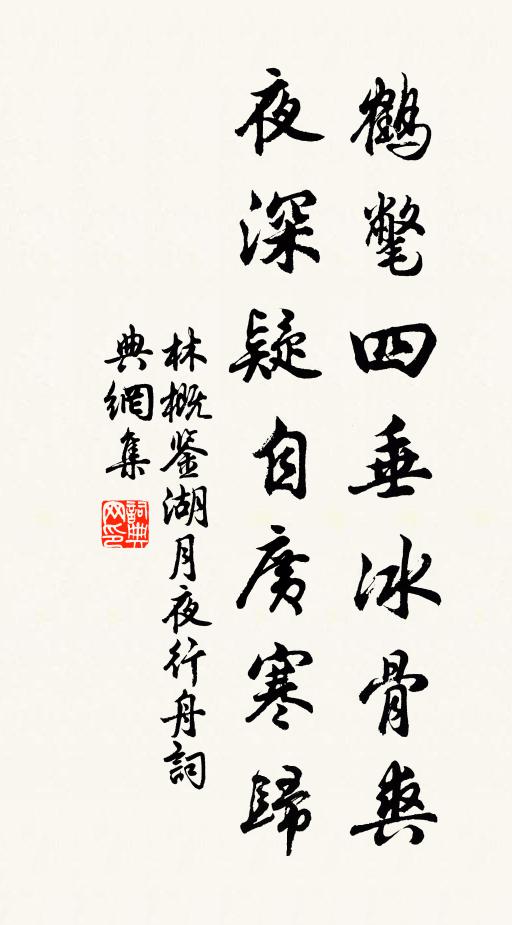 鶴氅四垂冰骨爽
夜深疑自廣寒歸
林概鉴湖月夜行舟詞
典網集
詞典网印